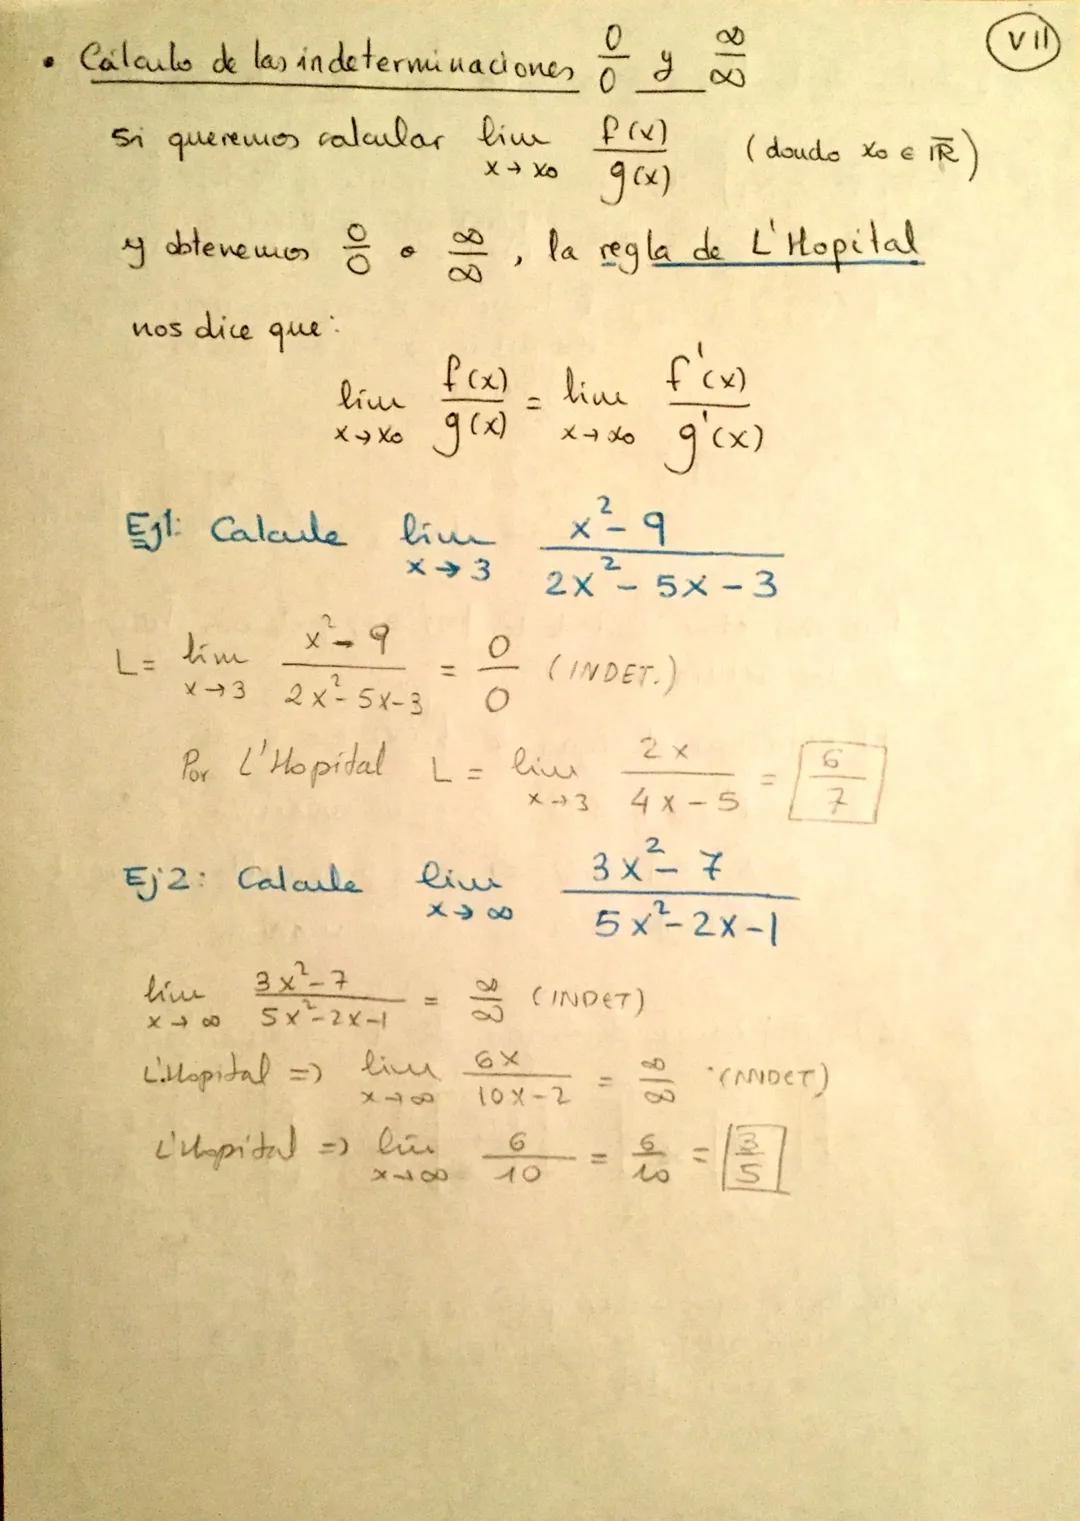 VII
• Cálculo de las indeterminaciones 0/0 y ∞/∞
Si queremos calcular lim x→x₀ f(x)/g(x) (donde x₀ ∈ R̅)
y obtenemos 0/0 o ∞/∞, la regla de L'Hopital
nos dice que:
lim x→x₀ f(x)/g(x) = lim x→x₀ f'(x)/g'(x)
Ej1: Calcule lim x→3 (x²-9)/(2x²-5x-3)
L = lim x→3 (x²-9)/(2x²-5x-3) = 0/0 (INDET.)
Por L'Hopital L = lim x→3 2x/(4x-5) = 6/7
Ej2: Calcule lim x→∞ (3x²-7)/(5x²-2x-1)
lim x→∞ (3x²-7)/(5x²-2x-1) = ∞/∞ (INDET)
L'Hopital => lim x→∞ 6x/(10x-2) = ∞/∞ (INDET)
L'Hopital => lim x→∞ 6/10 = 6/10 = 3/5